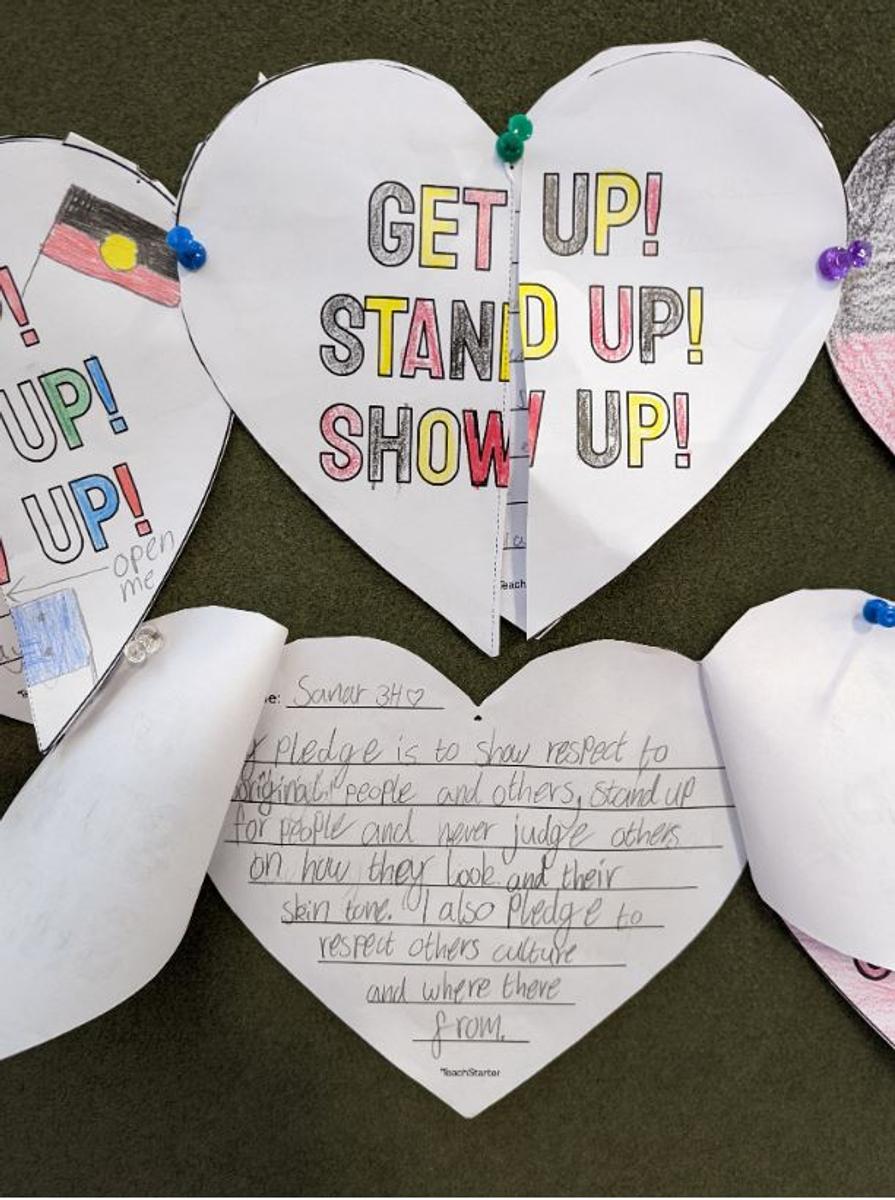 GET UP!
STAND UP!
SHOW UP!
!
UP!
UP!
open
me
Teach
e: Sanar 3H♡
pledge is to show respect to
original people and others, stand up
for people and never judge others
on how they look and their
skin tone. I also pledge to
respect others culture
and where there
from.
TeachStarter